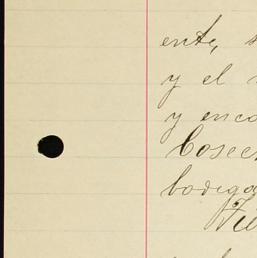 ente, s
y el
y enco
Cosec
bodega